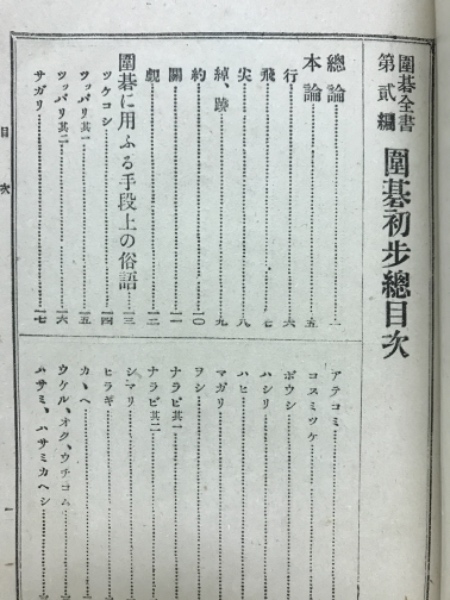 圍碁全書
第貳編
圍碁初步總目次
總論……一
本論……五
行……六
飛……七
尖……八
綽、跡……九
約……一〇
關……一一
覷……一二
圍碁に用ふる手段上の俗語……一三
ツケコシ……一四
ツッパリ其一……一五
ツッパリ其二……一六
サガリ……一七
アテコミ
コスミツケ
ボウシ
ハシリ
ハヒ
マガリ
ヲシ
ナラビ其一
ナラビ其二
シマリ
ヒラギ
カヽヘ
ウケル、オク、ウチコム
ハサミ、ハサミカヘシ
目次
一